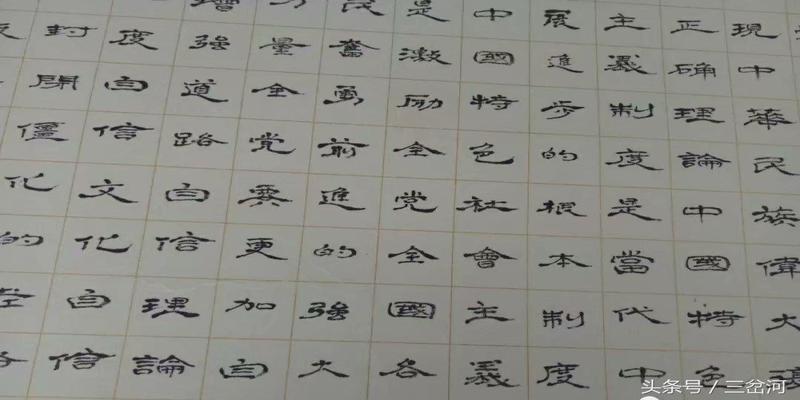 現中華民族偉大
正确理論中國特色
主義制度是當代中
展進步的根本制度
中國特色社會主義
是激励全党全國各
民奮勇前進的強大
力量全党要更加自
增強道路自信理論
度自信文化自信
封閉僵化的
头条号／三岔河